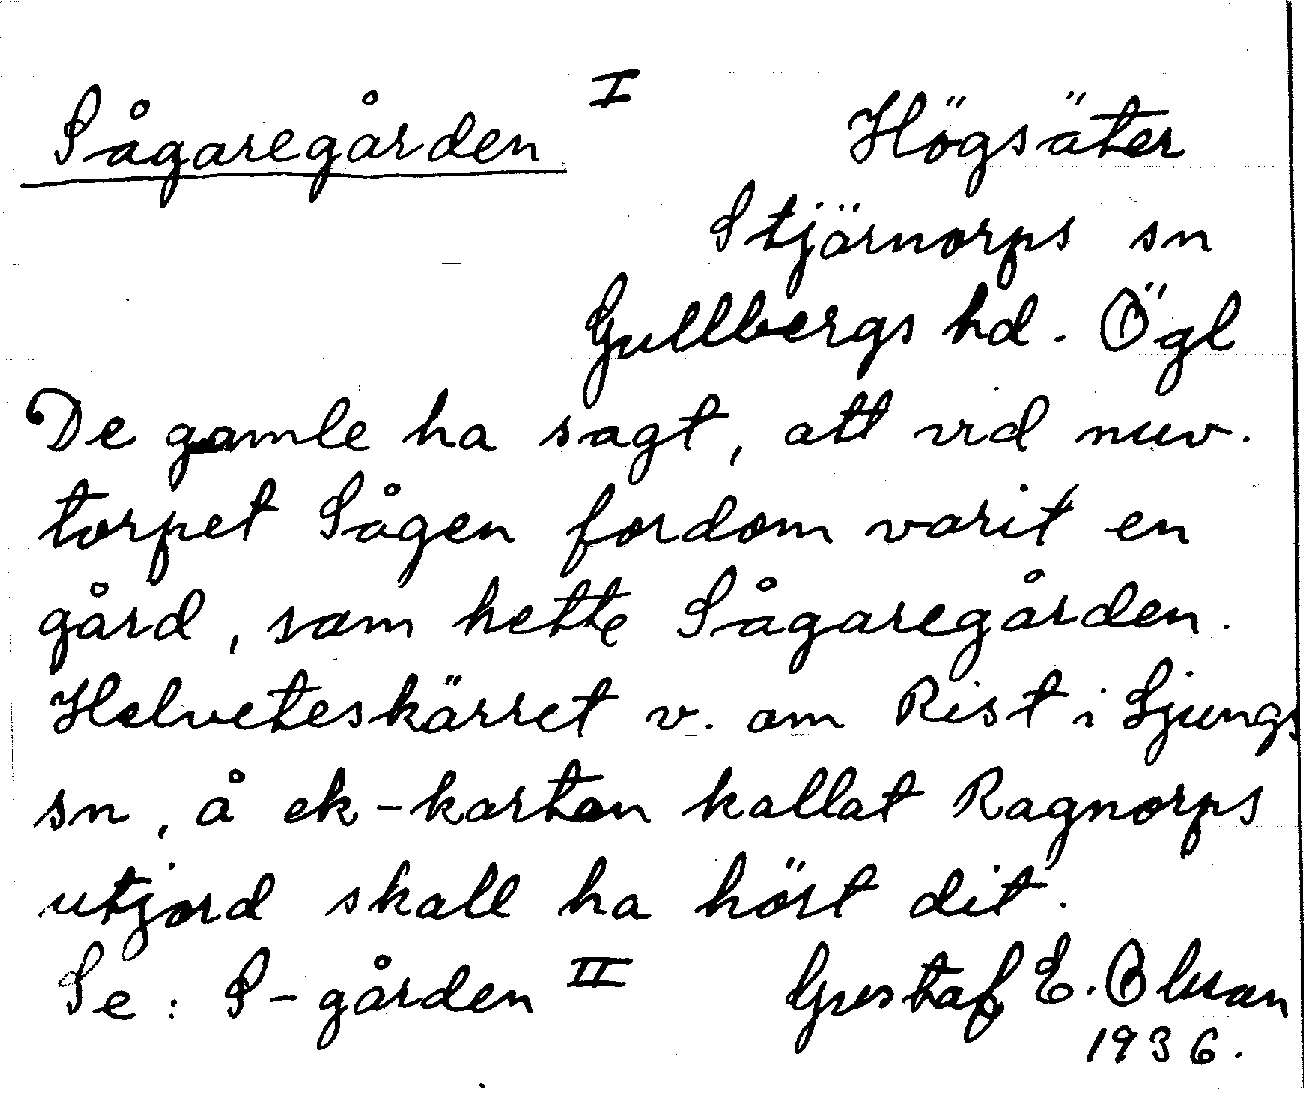 Sågaregården I Högsäter
Stjärnorps sn
Gullbergs hd. Ögl
De gamle ha sagt, att vid nuv.
torpet Sågen fordom varit en
gård, som hette Sågaregården.
Helveteskärret v. om Rist i Ljungs
sn, å ek-kartan kallat Ragnorps
utjord skall ha hört dit.
Se: S-gården II Gustaf E. Olsson
1936.